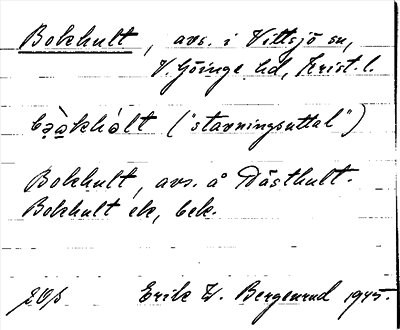 Bokhult, avs. i Vittsjö sn,
V. Göinge hd, Krist. l.
("stavningsuttal")
Bokhult, avs. å Dästhult.
Bokhult ek, bek.
Erik W. Bergenrud 1945.